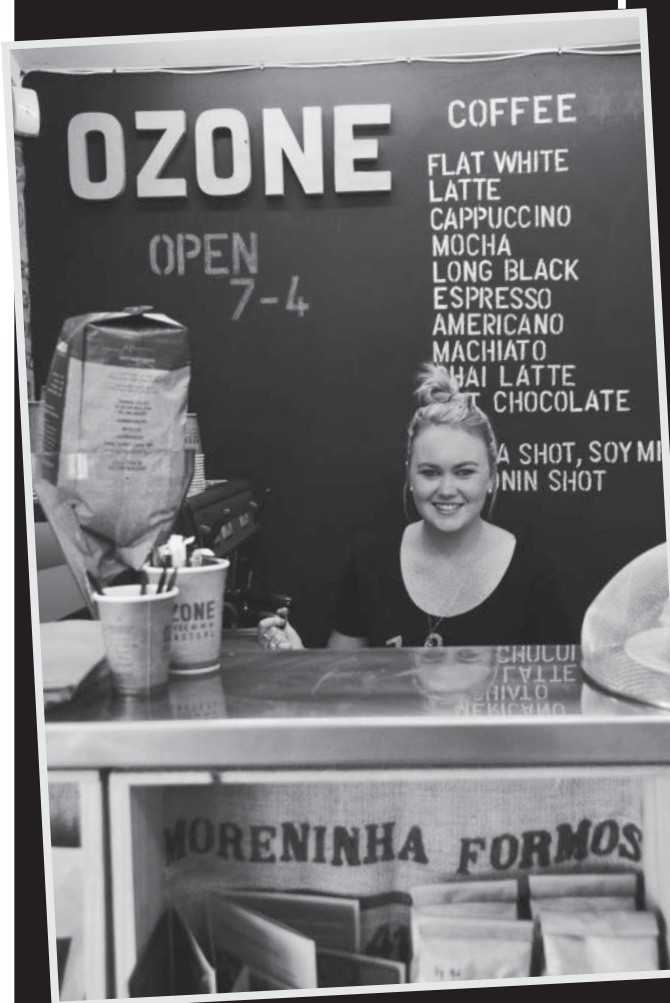 OZONE
OPEN
7-4
COFFEE
FLAT WHITE
LATTE
CAPPUCCINO
MOCHA
LONG BLACK
ESPRESSO
AMERICANO
MACHIATO
HAI LATTE
T CHOCOLATE
A SHOT, SOY MI
NIN SHOT
ZONE
MORENINHA FORMOS